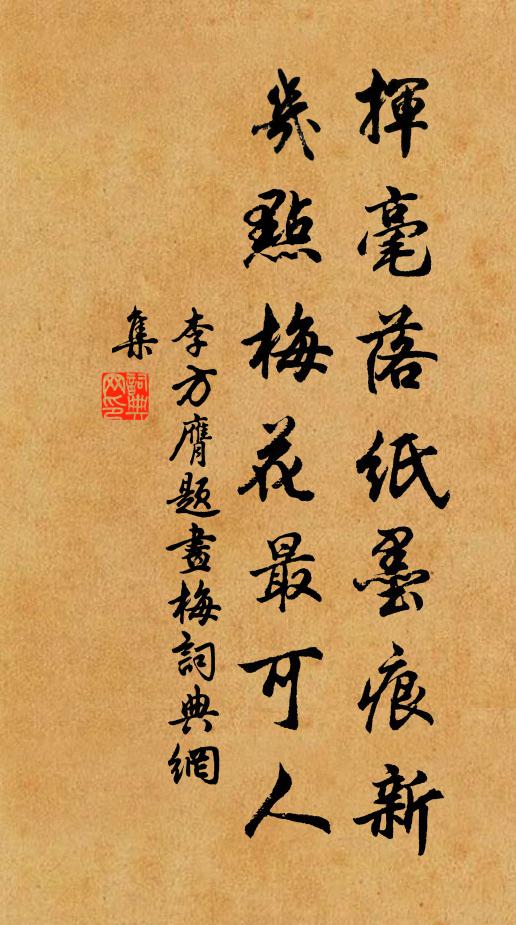 揮毫落紙墨痕新
幾點梅花最可人
李方膺題畫梅詞典網
集
詞典
网印